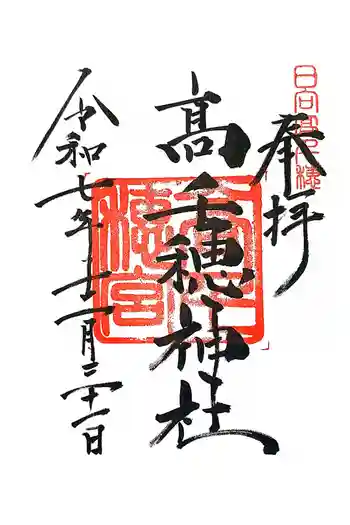 日向高千穂
奉拝
髙千穂神社
高千
穂宮
令和七年十一月二十一日